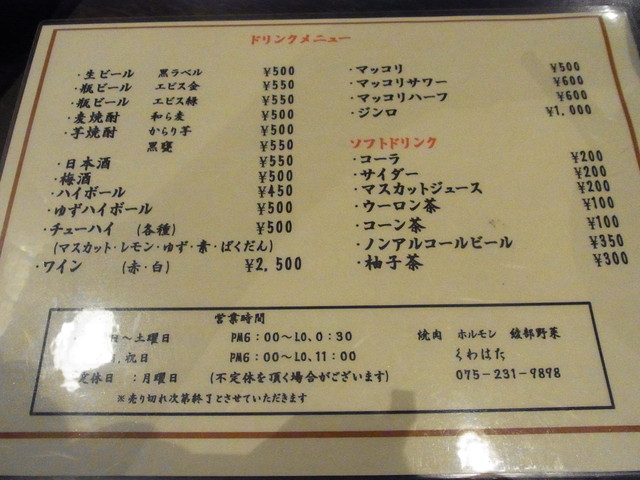 ドリンクメニュー
・生ビール 黒ラベル ¥500
・瓶ビール エビス金 ¥550
・瓶ビール エビス緑 ¥550
・麦焼酎 和ら麦 ¥500
・芋焼酎 からり芋 ¥500
黒甕 ¥550
・日本酒 ¥550
・梅酒 ¥500
・ハイボール ¥450
・ゆずハイボール ¥500
・チューハイ (各種) ¥500
(マスカット・レモン・ゆず・素・ばくだん)
・ワイン (赤・白) ¥2,500
・マッコリ ¥500
・マッコリサワー ¥600
・マッコリハーフ ¥600
・ジンロ ¥1,000
ソフトドリンク
・コーラ ¥200
・サイダー ¥200
・マスカットジュース ¥200
・ウーロン茶 ¥100
・コーン茶 ¥100
・ノンアルコールビール ¥350
・柚子茶 ¥300
営業時間
日～土曜日 PM6:00～LO、0:30
祝日 PM6:00～LO、11:00
定休日 :月曜日 (不定休を頂く場合がございます)
※売り切れ次第終了とさせていただきます
焼肉 ホルモン 綾部野菜
くわはた
075-231-9898